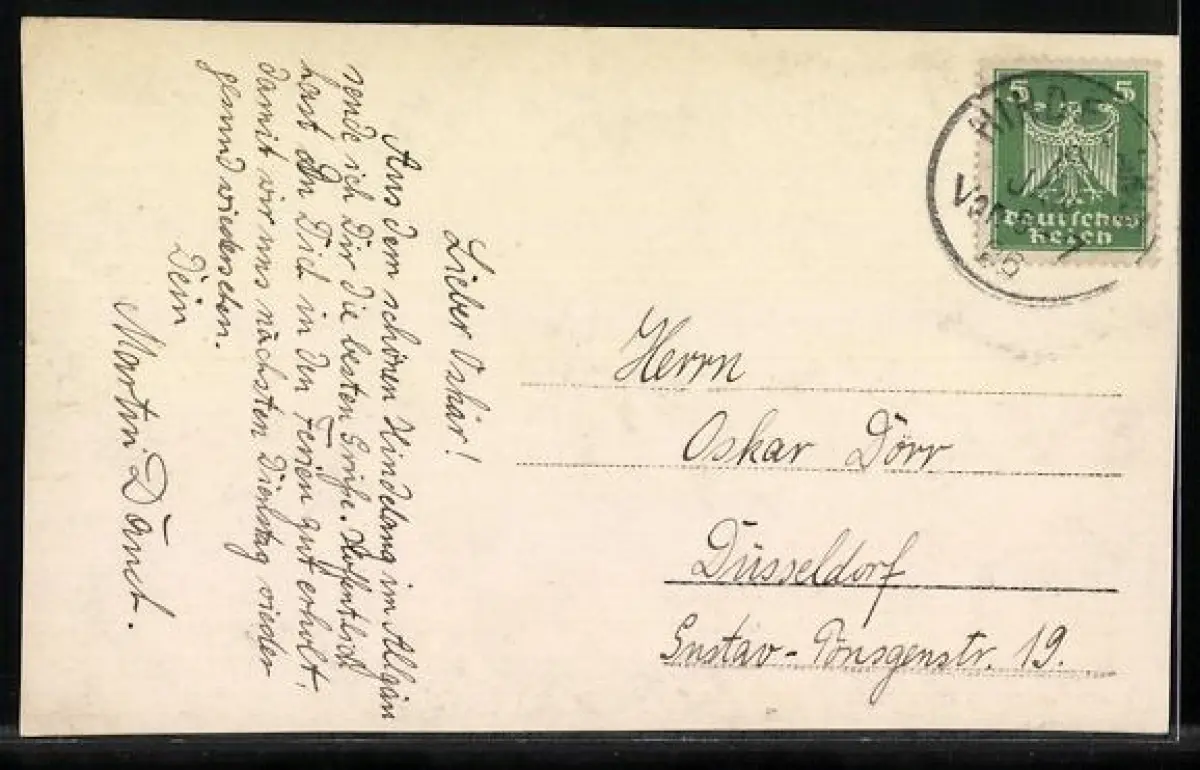 Lieber Oskar!
Aus dem schönen Hindelang im Algäu
sende ich Dir die besten Grüße. Hoffentlich
hast Du Dich in den Ferien gut erholt,
damit wir uns nächsten Dienstag wieder
gesund wiedersehen.
Dein
Martin
5 5
Deutsches
Reich
Herrn
Oskar Dörr
Düsseldorf
Gustav-Pönsgenstr. 19.